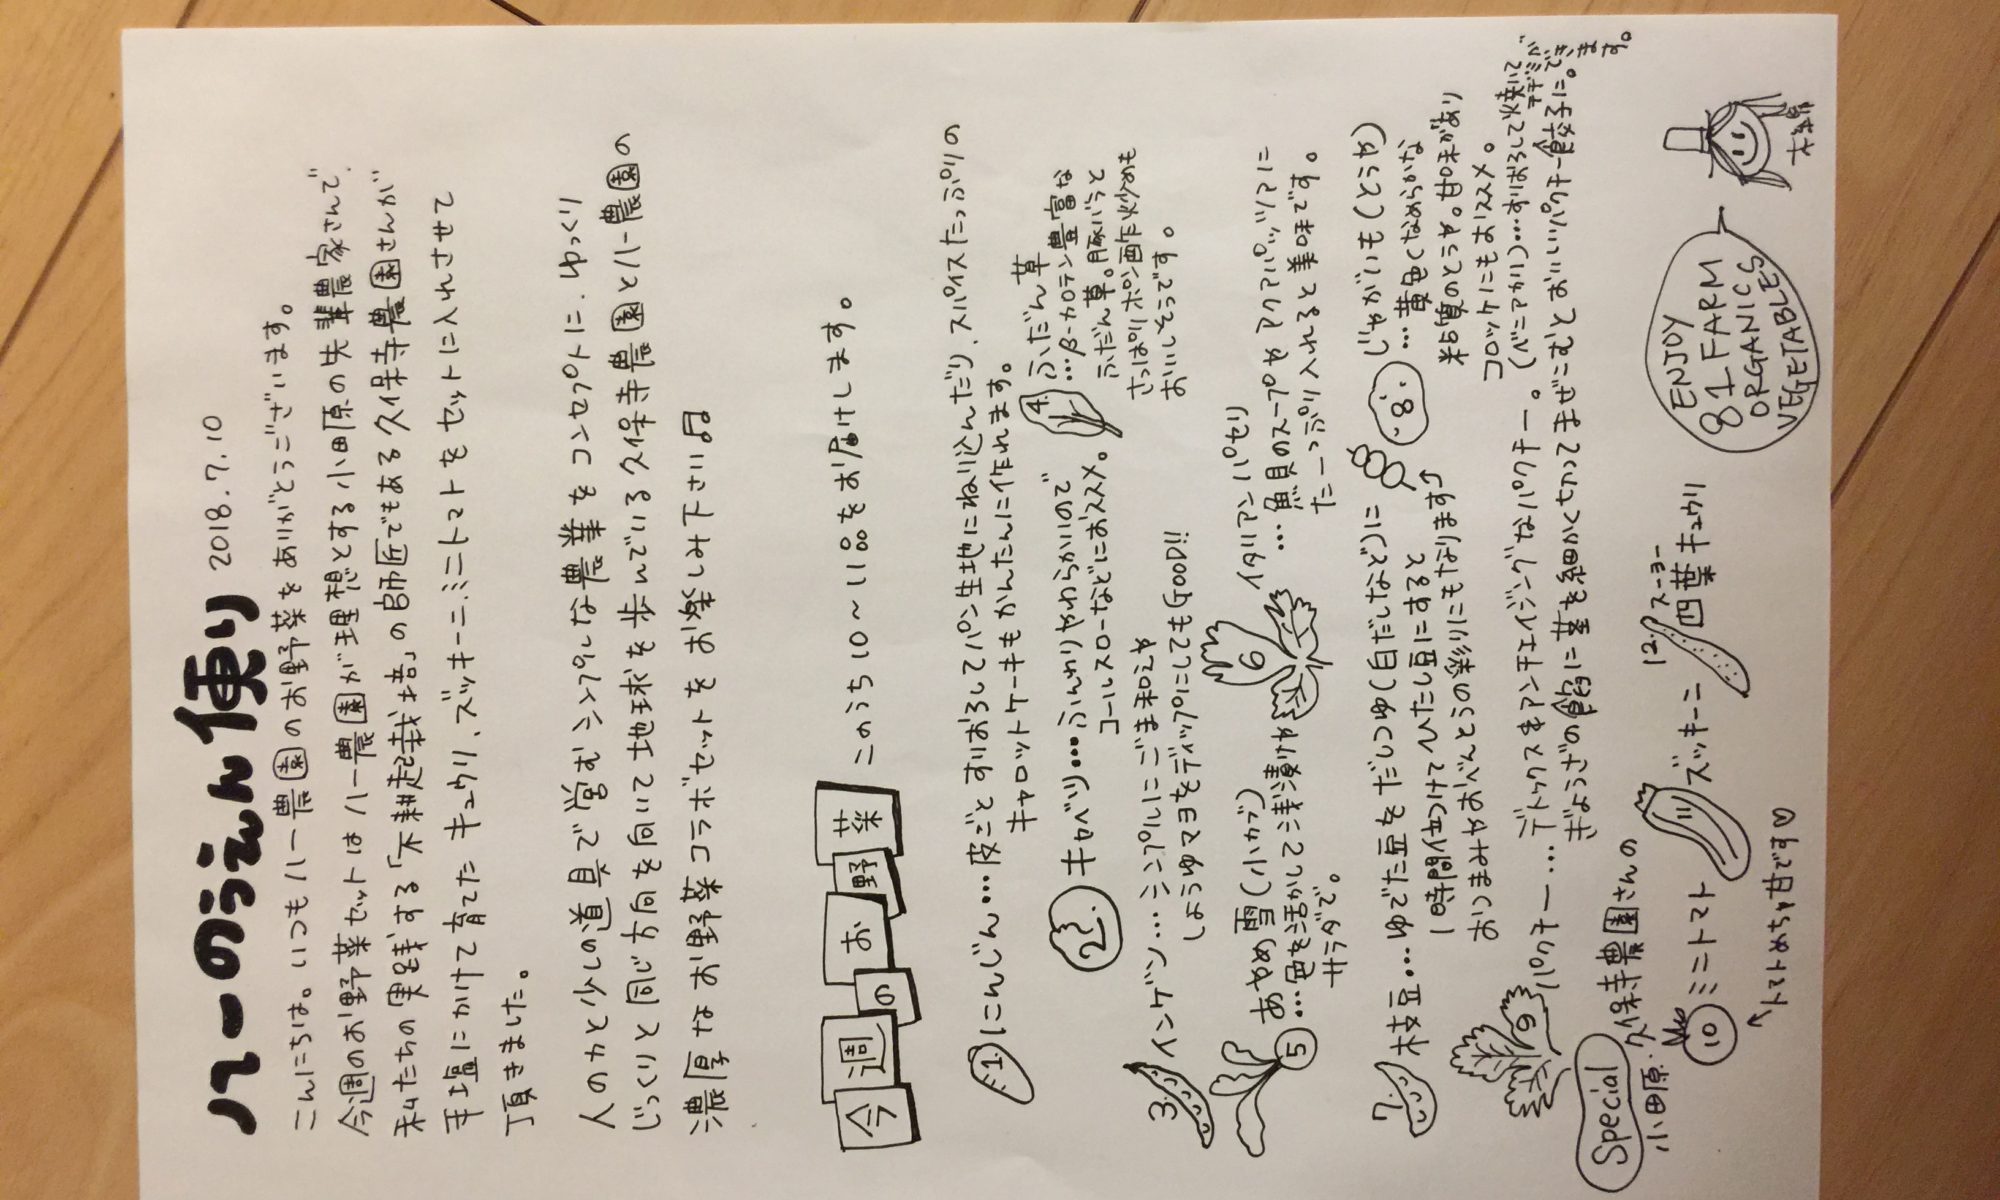 ハーのうえん便り 2018.7.10
こんにちは。いつもハー農園のお野菜をありがとうございます。
今週のお野菜セットはハー農園が理想とする小田原の先輩農家さんで、
私たちの実践する「不耕起栽培」の師匠でもある久保寺農園さんが
手塩にかけて育てたキュウリ、ズッキーニ、ミニトマトをセットに入れさせて
頂きました。
人の力と少しの道具で営むシンプルな農業をコンセプトに、ゆっくり
じっくりと同じ方向を向いて地球を歩んでいる久保寺農園とハー農園の
濃厚なお野菜コラボセットをお楽しみ下さい♫
今週のお野菜 このうち10〜11品をお届けします。
1. にんじん…皮ごとすりおろしてパン生地にねり込んだり、スパイスたっぷりの
キャロットケーキもかんたんに作れます。
2. キャベツ…ふんわりやわらかいので
コールスローなどにおススメ。
4. ふだん草
…β-カロテン豊富な
ふだん草。豚バラと
さっぱりポン酢炒めも
おいしそうです。
3. インゲン…シンプルにごま和えや
しょうゆマヨをディップにしてもGOOD!!
5 あやめ雪(小かブ)
…色を活かして浅漬けや
サラダで。
6 イタリアンパセリ
…魚貝のスープやアクアパッツァに
たーっぷり入れると美味です。
7. 枝豆…ゆでた豆をだしつゆ(白だしなど)に
1時間位つけてひたし豆にすると
おつまみやおべんとうの彩りにもなります♪
8. じゃがいも(とうや)
…黄色くなめらかな
粉質のとうや。甘味があり
コロッケにもおススメ。
(ベニアカリ)…すりおろして焼いて
チヂミができます。
9 パクチー…デトックス&アンチエイジングなパクチー。
ぎょうざの餡に茎を細かく切ってまぜこむとおいしいパクチー餃子に。
Special 小田原・久保寺農園さんの
10 ミニトマト
トマトめちゃ甘です♡
ズッキーニ
12. 四葉キュウリ
スーヨー
ENJOY
81FARM
ORGANICS
VEGETABLES